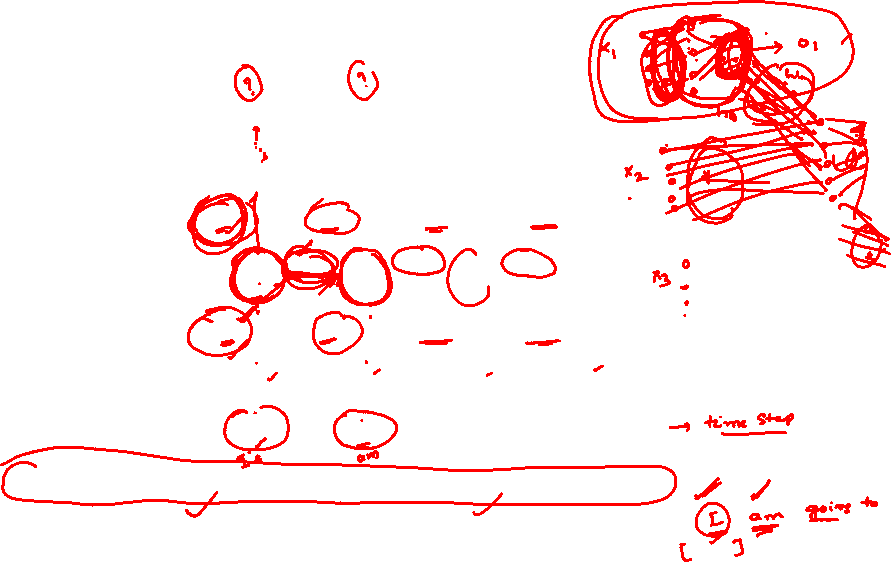 x1
o1
?
?
x2
x3
am
→ time step
[I] am going to
[ ]